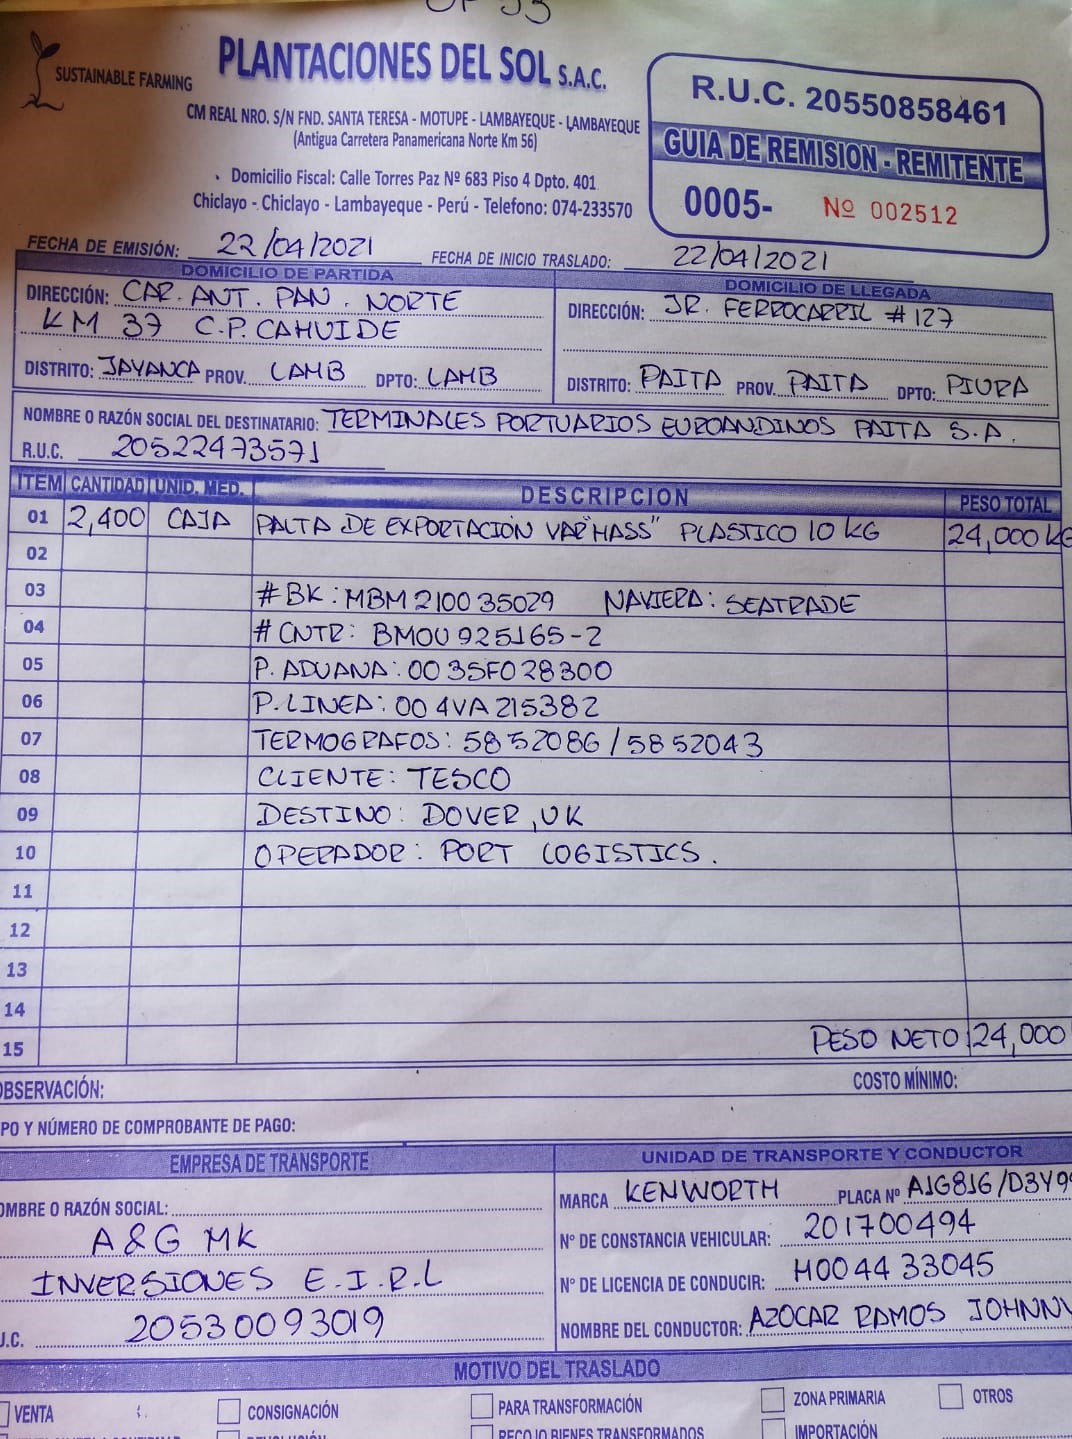 PLANTACIONES DEL SOL S.A.C.
SUSTAINABLE FARMING
CM REAL NRO. S/N FND. SANTA TERESA - MOTUPE - LAMBAYEQUE - LAMBAYEQUE
(Antigua Carretera Panamericana Norte Km 56)
Domicilio Fiscal: Calle Torres Paz Nº 683 Piso 4 Dpto. 401
Chiclayo - Chiclayo - Lambayeque - Perú - Telefono: 074-233570
R.U.C. 20550858461
GUIA DE REMISION - REMITENTE
0005- Nº 002512
FECHA DE EMISIÓN: 22/04/2021 FECHA DE INICIO TRASLADO: 22/04/2021
DOMICILIO DE PARTIDA
DIRECCIÓN: CAR. ANT. PAN. NORTE
KM 37 C.P. CAHUIDE
DISTRITO: JAYANCA PROV. LAMB DPTO: LAMB
DOMICILIO DE LLEGADA
DIRECCIÓN: JR. FERROCARRIL # 127
DISTRITO: PAITA PROV. PAITA DPTO: PIURA
NOMBRE O RAZÓN SOCIAL DEL DESTINATARIO: TERMINALES PORTUARIOS EUROANDINOS PAITA S.A.
R.U.C. 20522473571
ITEM CANTIDAD UNID. MED. DESCRIPCION PESO TOTAL
01 2,400 CAJA PALTA DE EXPORTACIÓN VAR"HASS" PLASTICO 10 KG 24,000 KG
02
03 #BK: MBM210035029 NAVIERA: SEATRADE
04 # CNTR: BMOU 925165-2
05 P. ADUANA: 0035F028300
06 P. LINEA: 004VA215382
07 TERMOGRAFOS: 5852086 / 5852043
08 CLIENTE: TESCO
09 DESTINO: DOVER, UK
10 OPERADOR: PORT LOGISTICS.
11
12
13
14
15 PESO NETO 24,000
OBSERVACIÓN: COSTO MÍNIMO:
PO Y NÚMERO DE COMPROBANTE DE PAGO:
EMPRESA DE TRANSPORTE
OMBRE O RAZÓN SOCIAL:
A & G MK
INVERSIONES E.I.R.L
.U.C. 20530093019
UNIDAD DE TRANSPORTE Y CONDUCTOR
MARCA KENWORTH PLACA Nº A1G816/D3Y9
Nº DE CONSTANCIA VEHICULAR: 201700494
Nº DE LICENCIA DE CONDUCIR: H004433045
NOMBRE DEL CONDUCTOR: AZOCAR RAMOS JOHNNY
MOTIVO DEL TRASLADO
VENTA CONSIGNACIÓN PARA TRANSFORMACIÓN ZONA PRIMARIA OTROS
RECOJO BIENES TRANSFORMADOS IMPORTACIÓN